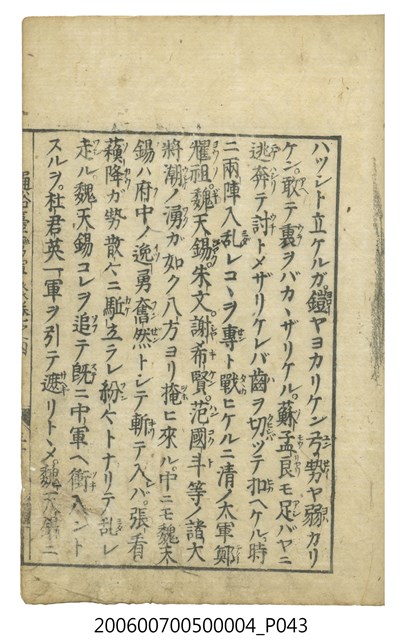 ハツシト立ケルガ鎧ヤヨカリケン弓勢ヤ弱カリ
ケン。敢テ裏ヲバカヽザリケル。蘇孟良モ足バヤニ
逃奔テ討トメザリケレバ齒ヲ切ツテ扣ヘケル。時
ニ兩陣入乱レコヽヲ專ト戰ヒケルニ清ノ大軍鄭
耀祖。魏天錫。朱文。謝希賢。范國斗等ノ諸大
將潮ノ湧ガ如ク八方ヨリ掩ヒ來ル。中ニモ魏末
錫ハ府中ノ逸勇奮然トシテ斬テ入ハ。張看
藬降ガ勢散〻ニ駈立ラレ紛〻トナリテ乱レ
走ル。魏天錫コレヲ追テ既ニ中軍ヘ衝入ント
スルヲ。杜君英一軍ヲ引テ遮リトヾメ魏天錫ニ
200600700500004_P043